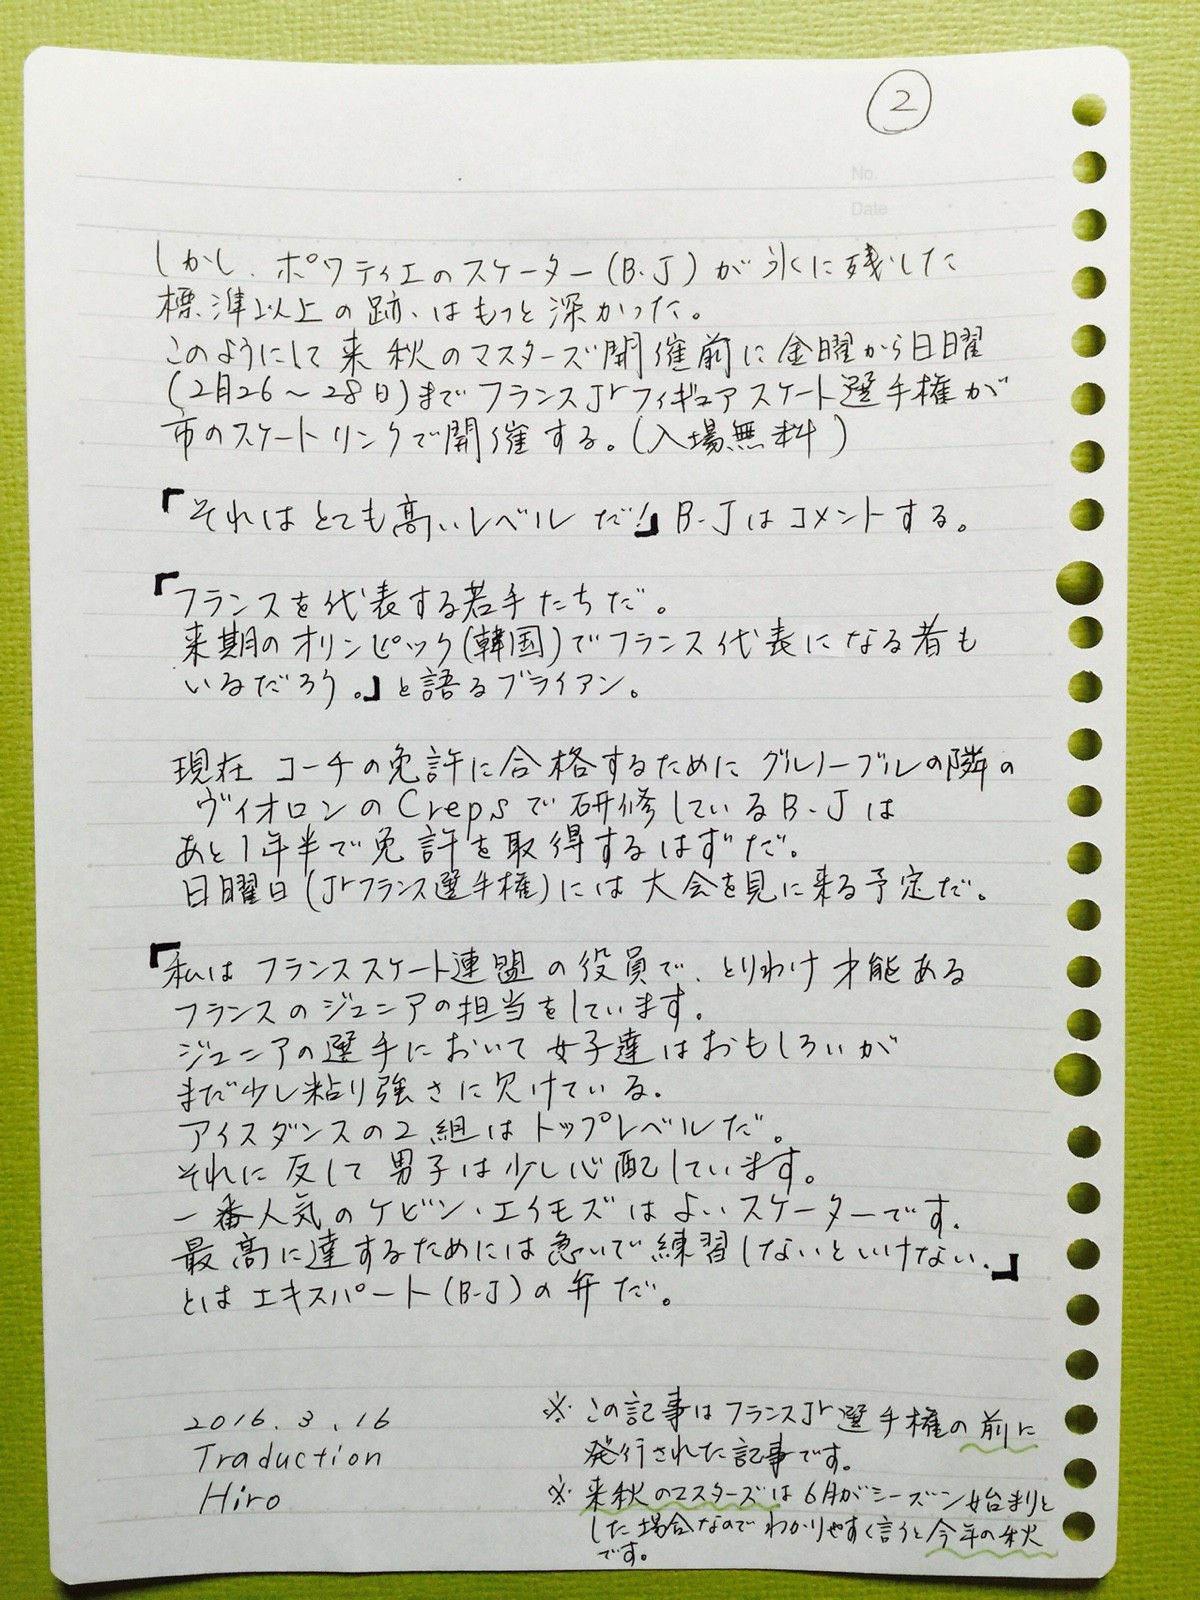 ②
No.
Date
しかし、ポワティエのスケーター(B.J)が氷に残した
標準以上の跡、はもっと深かった。
このようにして来秋のマスターズ開催前に金曜から日曜
(2月26〜28日)までフランスJrフィギュアスケート選手権が
市のスケートリンクで開催する。(入場無料)
『それはとても高いレベルだ!』B-Jはコメントする。
『フランスを代表する若手たちだ。
来期のオリンピック(韓国)でフランス代表になる者も
いるだろう。』と語るブライアン。
現在コーチの免許に合格するためにグルノーブルの隣の
ヴィオロンのCrepsで研修しているB-Jは
あと1年半で免許を取得するはずだ。
日曜日(Jrフランス選手権)には大会を見に来る予定だ。
『私はフランススケート連盟の役員で、とりわけ才能ある
フランスのジュニアの担当をしています。
ジュニアの選手において女子達はおもしろいが
まだ少し粘り強さに欠けている。
アイスダンスの2組はトップレベルだ。
それに反して男子は少し心配しています。
一番人気のケビン・エイモズはよいスケーターです。
最高に達するためには急いで練習しないといけない。』
とはエキスパート(B-J)の弁だ。
2016.3.16
Traduction
Hiro
※この記事はフランスJr選手権の前に
発行された記事です。
※来秋のマスターズは6月がシーズン始まりと
した場合なのでわかりやすく言うと今年の秋
です。